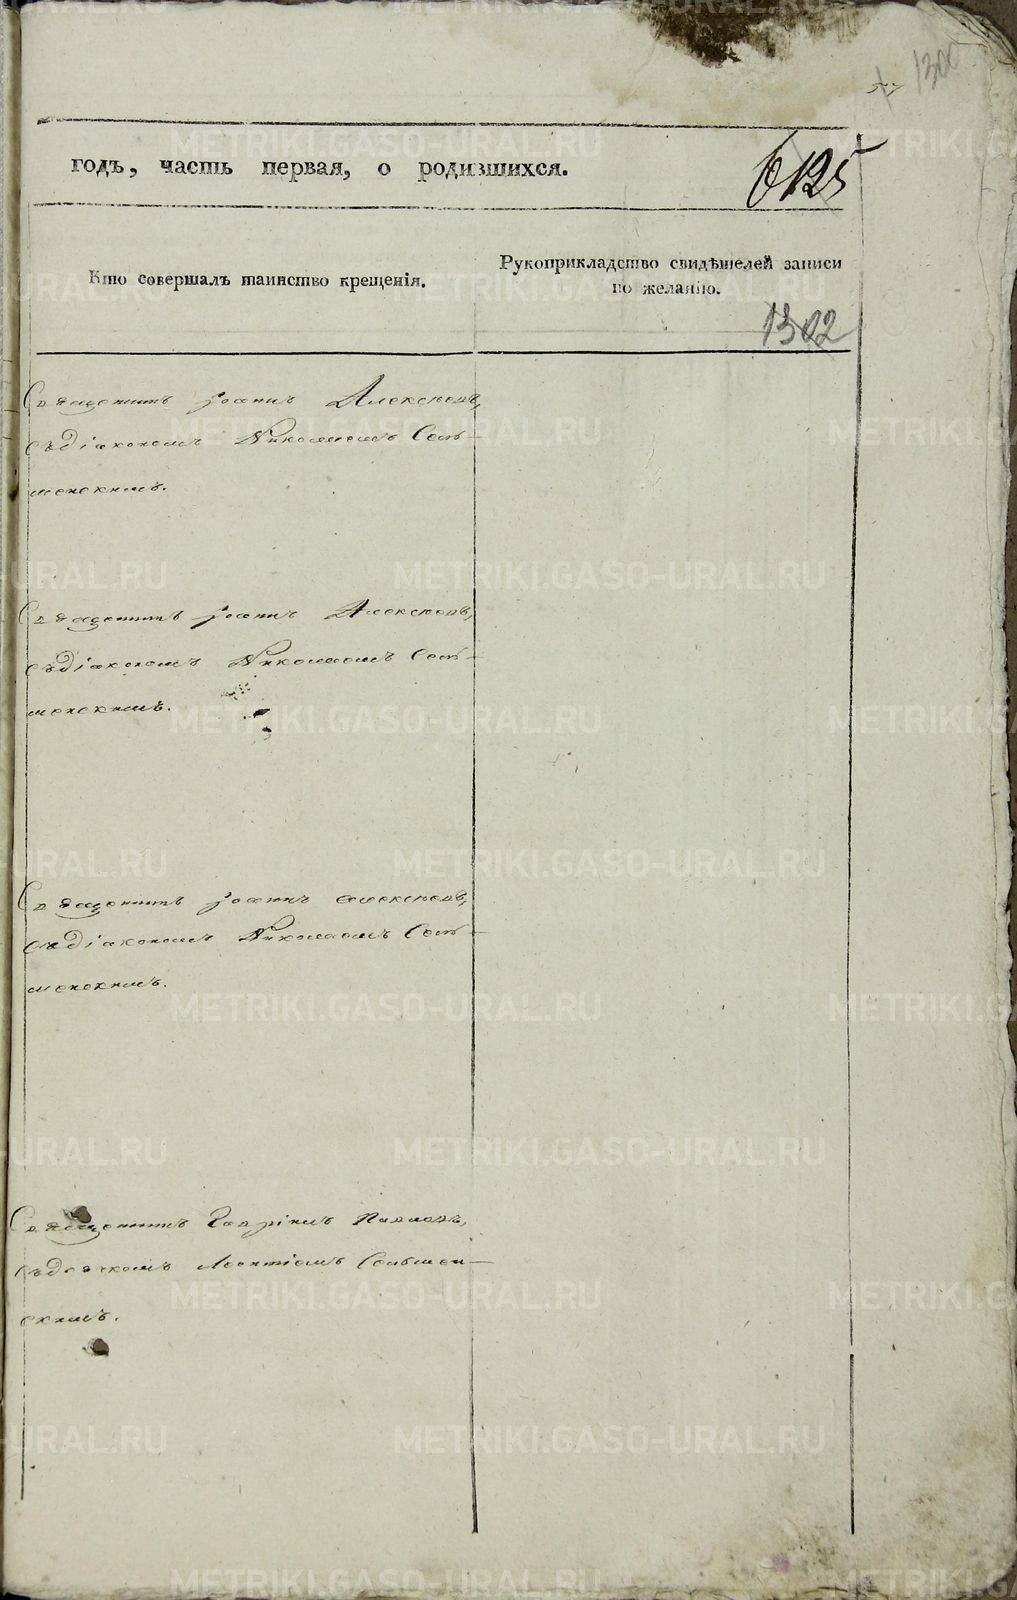 1300
годъ, часть первая, о родившихся.
6125
Кто совершалъ таинство крещенія.
Рукоприкладство свидѣтелей записи
по желанію.
1302
Священникъ Іоаннъ Алексѣевъ,
съ діакономъ Николаемъ
Священникъ Іоаннъ Алексѣевъ,
съ діакономъ Николаемъ
Священникъ Іоаннъ Алексѣевъ,
съ діакономъ Николаемъ
Священникъ Гавріилъ Павловъ,
съ дьячкомъ Леонтіемъ
METRIKI.GASO-URAL.RU